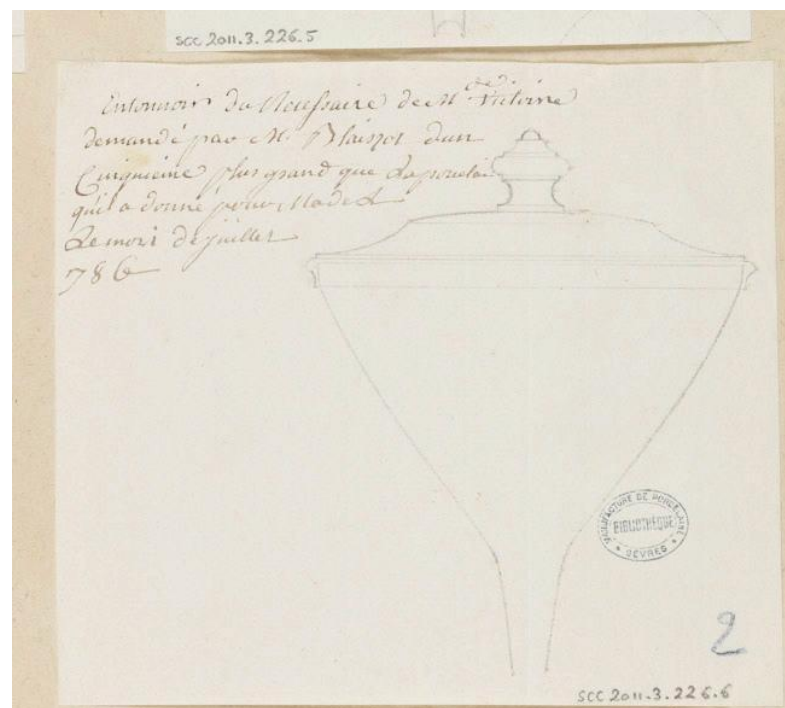 SCC 2011.3.226.5
Entonnoir du Nessaire de M.de Victoire
demandé par Mr. Blaizot d'un
Cinquieme plus grand que La porcelai
qu'il a donné pour Modele
Le mois de juillet
786
MANUFACTURE DE PORCELAINE
BIBLIOTHÈQUE
SEVRES
2
SCC 2011.3.226.6